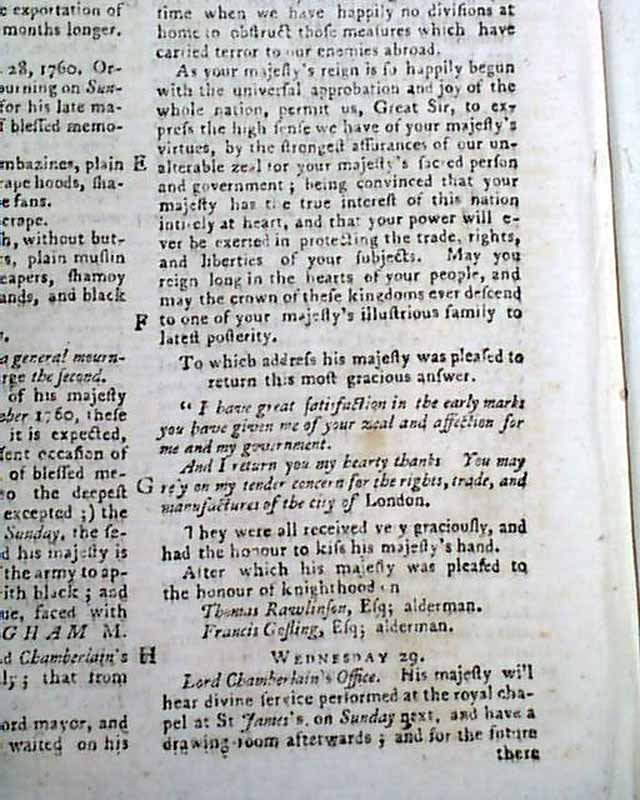 exportation of
months longer.
28, 1760. Or-
ourning on Sun-
for his late ma-
f bleſſed memo-
mbazines, plain
rape hoods, ſha-
e fans.
crape.
h, without but-
s, plain muſlin
eapers, ſhamoy
ands, and black
a general mourn-
rge the ſecond.
of his majeſty
ober 1760, theſe
it is expected,
ſent occaſion of
of bleſſed me-
to the deepeſt
excepted ;) the
Sunday, the ſe-
d his majeſty is
the army to ap-
ith black ; and
ue, faced with
GHAM M.
d Chamberlain's
ly ; that from
ord mayor, and
waited on his
time when we have happily no diviſions at
home to obſtruct thoſe meaſures which have
carried terror to our enemies abroad.
As your majeſty's reign is ſo happily begun
with the univerſal approbation and joy of the
whole nation, permit us, Great Sir, to ex-
preſs the high ſenſe we have of your majeſty's
virtues, by the ſtrongeſt aſſurances of our un-
E alterable zeal for your majeſty's ſacred perſon
and government ; being convinced that your
majeſty has the true intereſt of this nation
intirely at heart, and that your power will e-
ver be exerted in protecting the trade, rights,
and liberties of your ſubjects. May you
reign long in the hearts of your people, and
may the crown of theſe kingdoms ever deſcend
F to one of your majeſty's illuſtrious family to
lateſt poſterity.
To which addreſs his majeſty was pleaſed to
return this moſt gracious anſwer.
" I have great ſatisfaction in the early marks
you have given me of your zeal and affection for
me and my government.
And I return you my hearty thanks You may
G rely on my tender concern for the rights, trade, and
manufactures of the city of London.
They were all received very graciouſly, and
had the honour to kiſs his majeſty's hand.
After which his majeſty was pleaſed to
the honour of knighthood on
Thomas Rawlinſon, Eſq; alderman.
Francis Goſling, Eſq; alderman.
H WEDNESDAY 29.
Lord Chamberlain's Office. His majeſty will
hear divine ſervice performed at the royal cha-
pel at St James's, on Sunday next, and have a
drawing-room afterwards ; and for the future
there